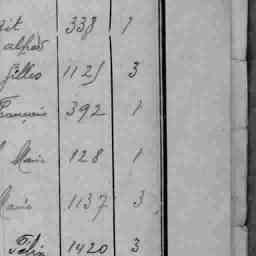 dit 338 1
alfred
Gilles 1125 3
François 392 1
Marie 128 1
Marie 1137 3
Félix 1420 3